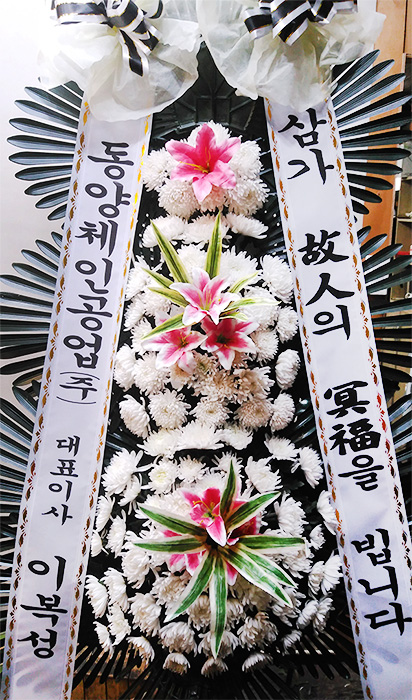 삼가 故人의 冥福을 빕니다
동양체인공업(주) 대표이사 이복성